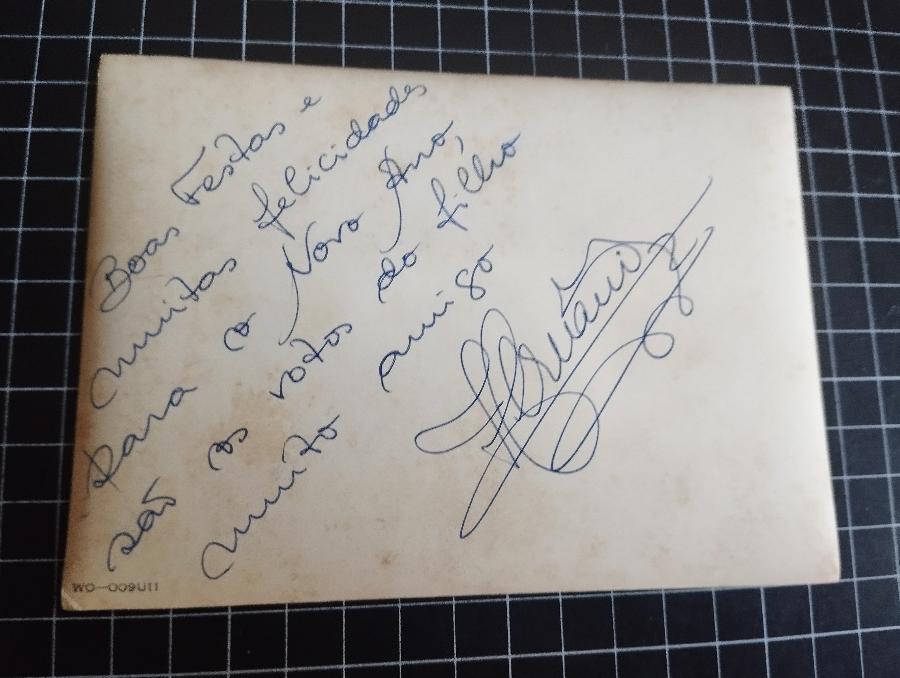 Boas Festas e
muitas felicidades
para o Novo Ano,
são os votos do filho
muito amigo
Hernâni
WO-009U11